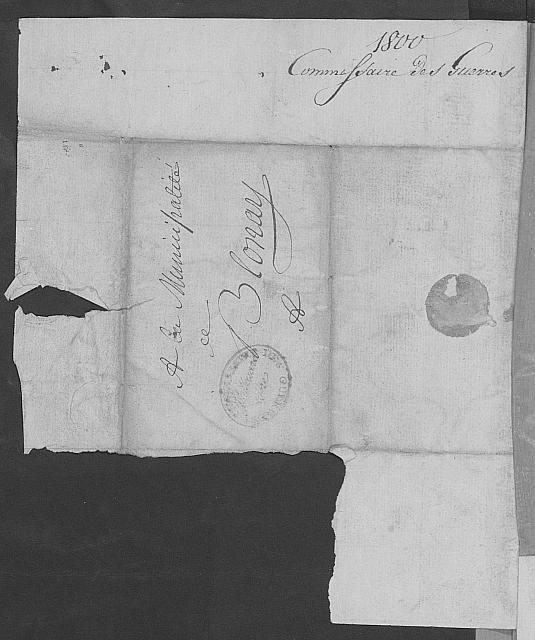 1800
Commissaire des Guerres
A La Municipalité
de
Blonay
A